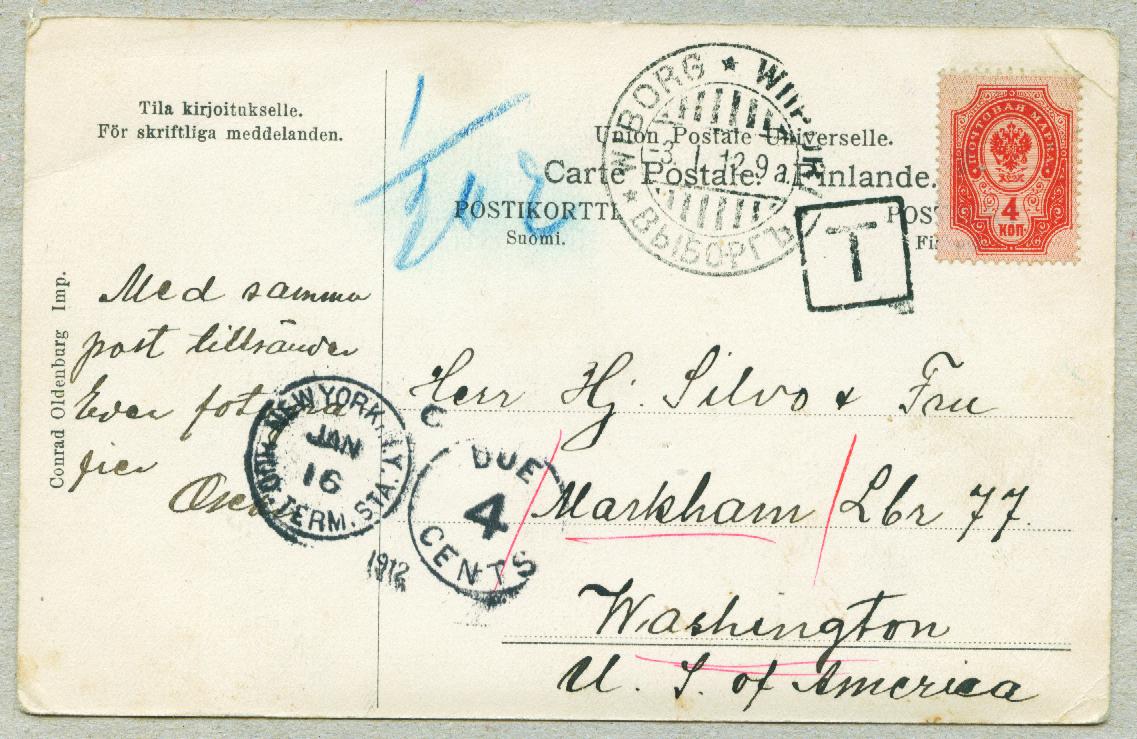 Tila kirjoitukselle.
För skriftliga meddelanden.
Union Postale Universelle.
Carte Postale. Finlande.
POSTIKORTTI
Suomi.
POS
Fi
WIBORG ★ WIIPURI ★ ВЫБОРГЪ ★
-3. I. 12. 9 a.
T
ПОЧТОВАЯ МАРКА
4
КОП
Conrad Oldenburg Imp.
Med samma
post tillsänder
Eder
fier
Oscar
NEW YORK, N.Y.
JAN
16
HUD. TERM. STA.
1912
DUE
4
CENTS
Herr Hj. Silvo & Fru
Markham Lbr 77.
Washington
U. S. of America